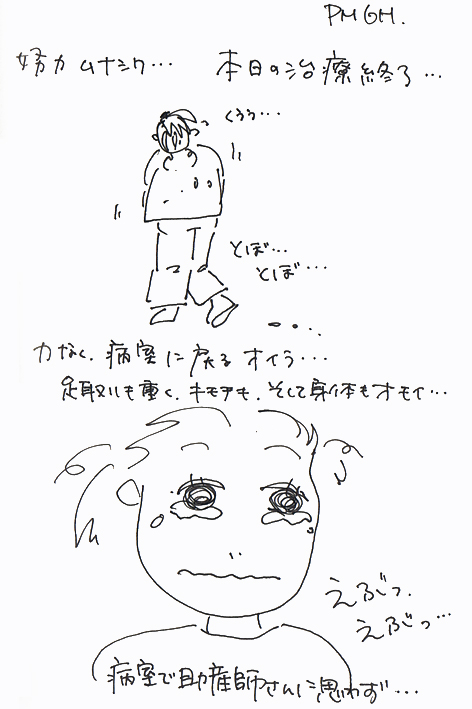 PMGH.
努力ムナシク… 本日の治療終了…
くぅぅ…
とぼ…
とぼ…
力なく、病室に戻るオイラ…
足取りも重く、キモチも、そして身体もオモイ…
えぶっ、
えぶっ…
病室で助産師さんに思わず…